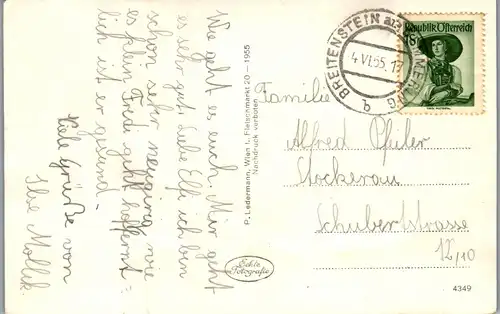 Wie geht es euch. Mir geht
es sehr gut. Liebe Elfi ich bin
schon sehr neugierig wie
es klein Fredi geht hoffent=
lich ist er gesund –
Viele Grüße von
Ilse Mollik.
P. Ledermann, Wien I., Fleischmarkt 20 – 1955
Nachdruck verboten
Echte
Fotografie
BREITENSTEIN a.
4.VI.55.17
b
Republik Österreich
Familie
Alfred Pfeiler
Stockerau
Schubertstrasse
12/10
4349